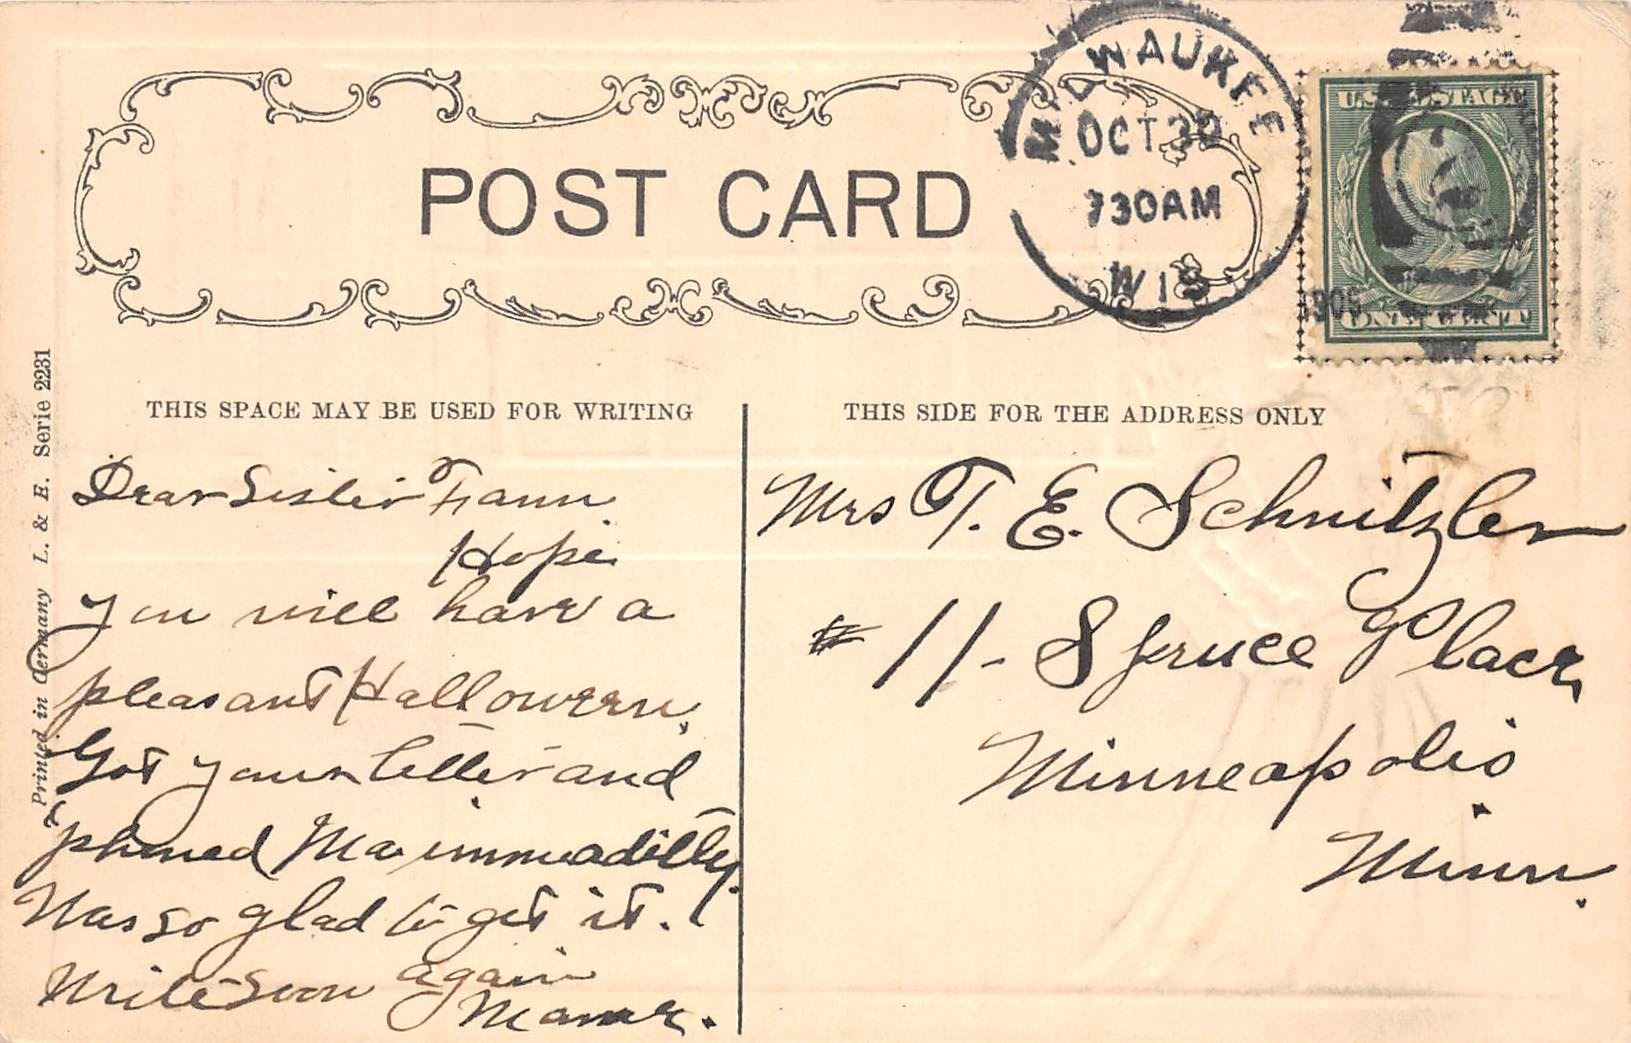 POST CARD
MILWAUKEE
OCT 30
730AM
WIS
U.S. POSTAGE
ONE CENT
THIS SPACE MAY BE USED FOR WRITING
THIS SIDE FOR THE ADDRESS ONLY
Printed in Germany L. & E. Serie 2231
Dear Sister Fann
Hope
you will have a
pleasant Halloween.
Got your letter and
phoned Ma immeaditly.
Was so glad to get it.
Write soon again
Mrs T. E. Schnitzler
# 11 - Spruce Place,
Minneapolis
Minn.